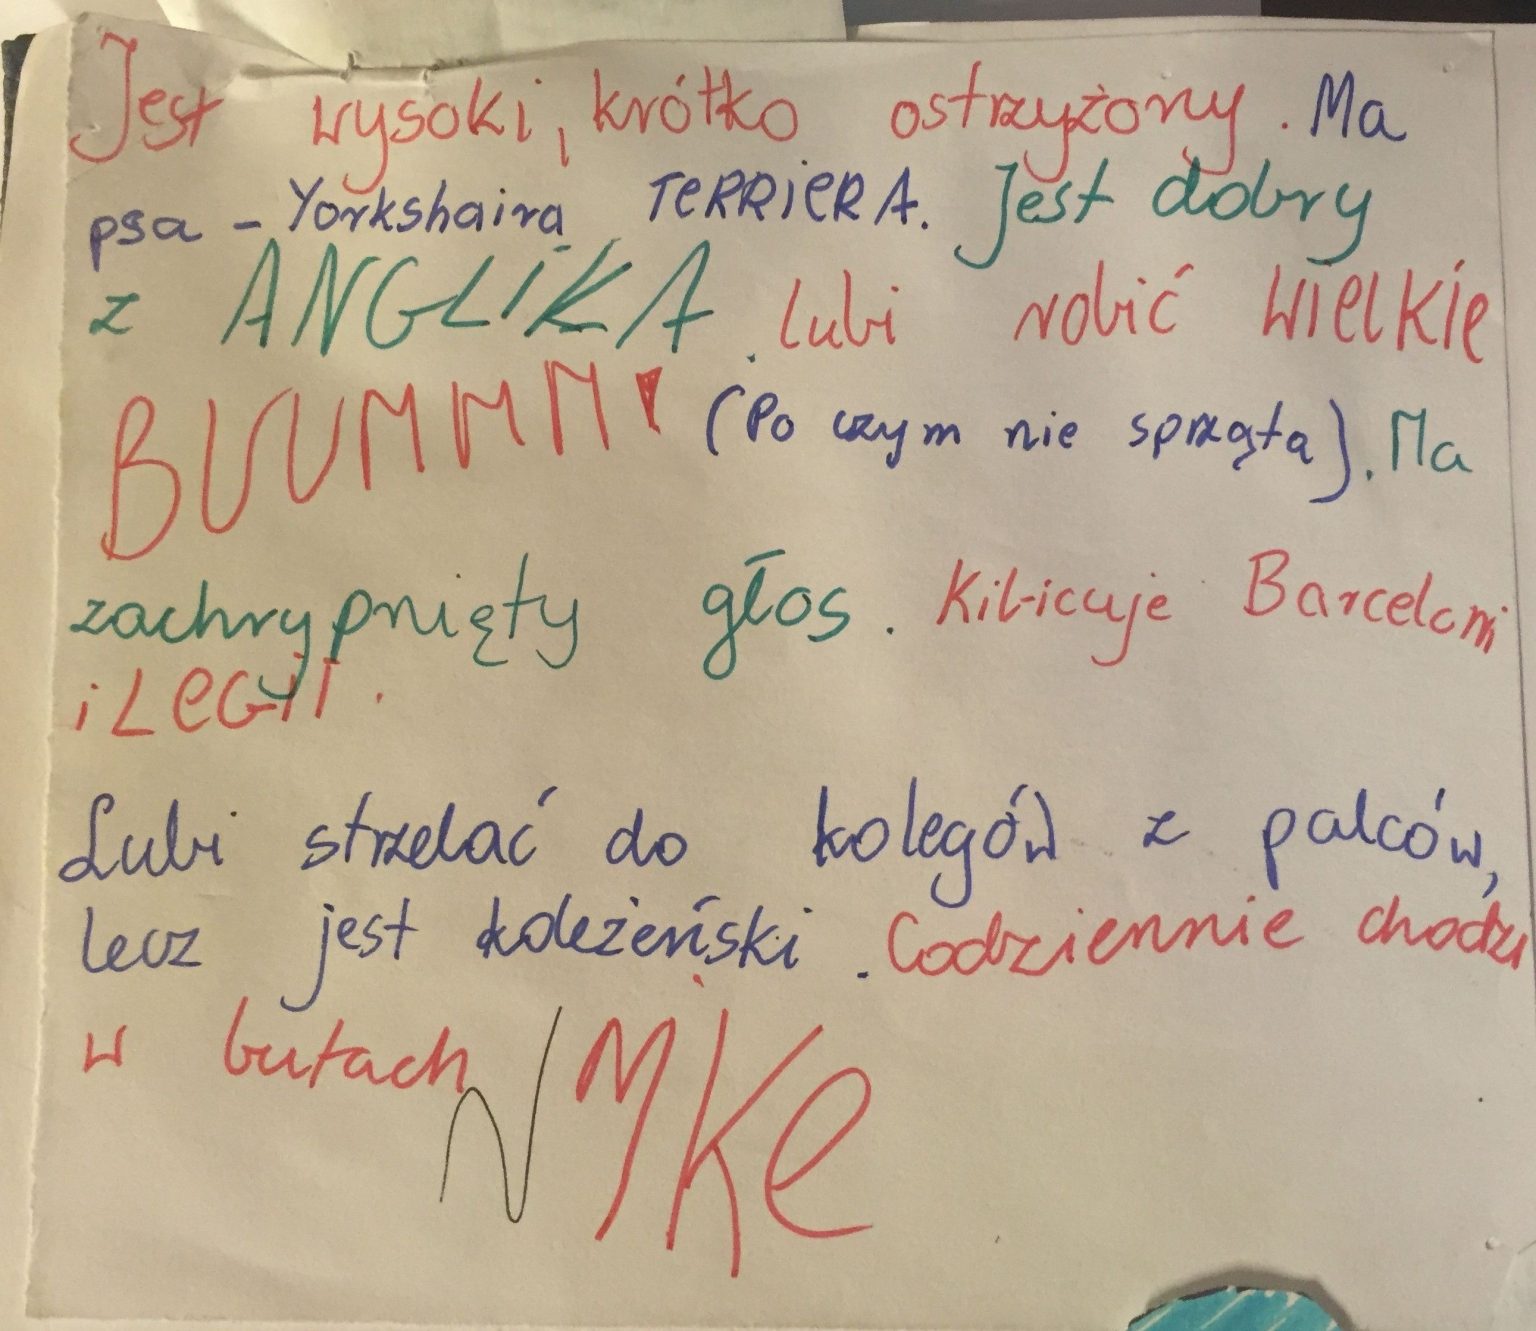 Jest wysoki, krótko ostrzyżony. Ma
psa - Yorkshaira TERRiERA. Jest dobry
z ANGLiKA. Lubi robić WIELKIE
BUUMMM! (Po czym nie sprząta). Ma
zachrypnięty głos. Kibicuje Barceloni
i LEGII.
Lubi strzelać do kolegów z palców,
lecz jest koleżeński. Codziennie chodzi
w butach
NIKE